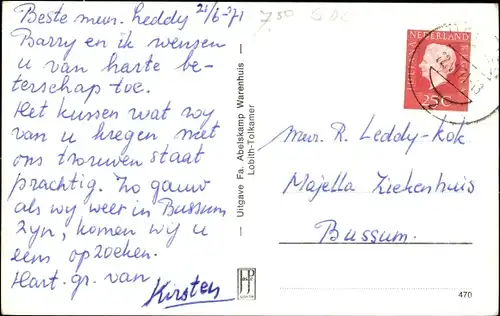 Beste mevr. Leddy 21/6-'71
Barry en ik wensen
u van harte be-
terschap toe.
Het kussen wat wy
van u kregen met
ons trouwen staat
prachtig. Zo gauw
als wy weer in Bussum
zyn, komen wij u
eens opzoeken.
Hart. gr. van
Kirsten
Uitgave Fa. Abelskamp Warenhuis
Lobith-Tolkamer
7,50
NEDERLAND
25c
Mevr. R. Leddy-Kok
Majella Ziekenhuis
Bussum.
470